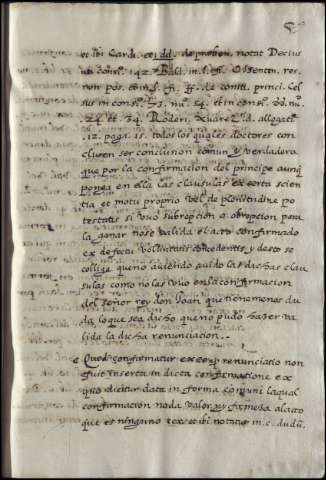 et ibi Card. et dd. de proben. notat Decius
in consi. 142. Bald. in l. fi. ff. de senten. res.
non pos. et in l. fi. ff. de consti. princi. Cel
sus in consi. 73. nu. 54. et in consi. nu.
24. et 34. Roderi. Xuarez d. allegati.
12. pag. 15. todos los quales doctores con
cluyen ser conclusion comun y verdadera
que por la confirmacion del principe aunq
ponga en ella las clausulas ex certa scien
tia et motu proprio vel de plenitudine po
testatis si vuo subrepcion o obrepcion para
la ganar no se valida el acto confirmado
ex defectu voluntatis concedentis y desto se
collige que no aviendo avido las dichas clau
sulas como no las vuo en la confirmacion
del señor rey don Joan que tenemos du
da, lo que sea dicho que no pudo hazer va
lida la dicha renunciacion.
Quod confirmatur ex eo q renunciatio non
fuit inserta in dicta confirmatione ex
quo dicitur data in forma comuni la qual
confirmacion no da valor ny firmeza al acto
que es ninguno tex. et ibi notatur in c. dudũ.